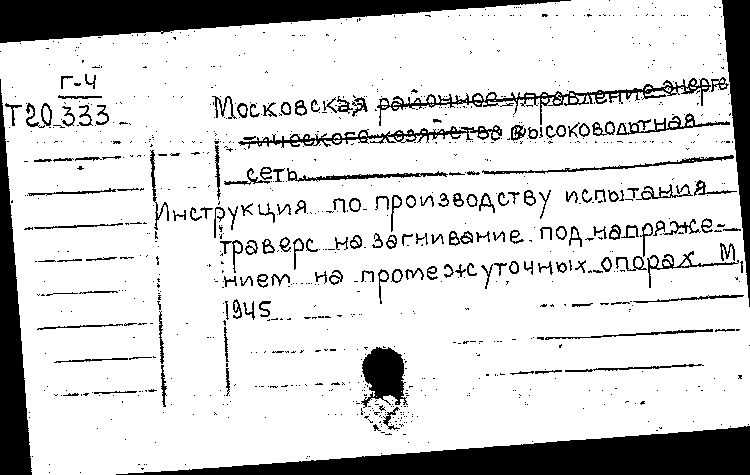 Г-4
Т20333
Московская районное управление энерге
тического хозяйства высоковольтная
сеть.
Инструкция по производству испытания
траверс на загнивание под напряже-
нием на протежуточных опорах М,
1945